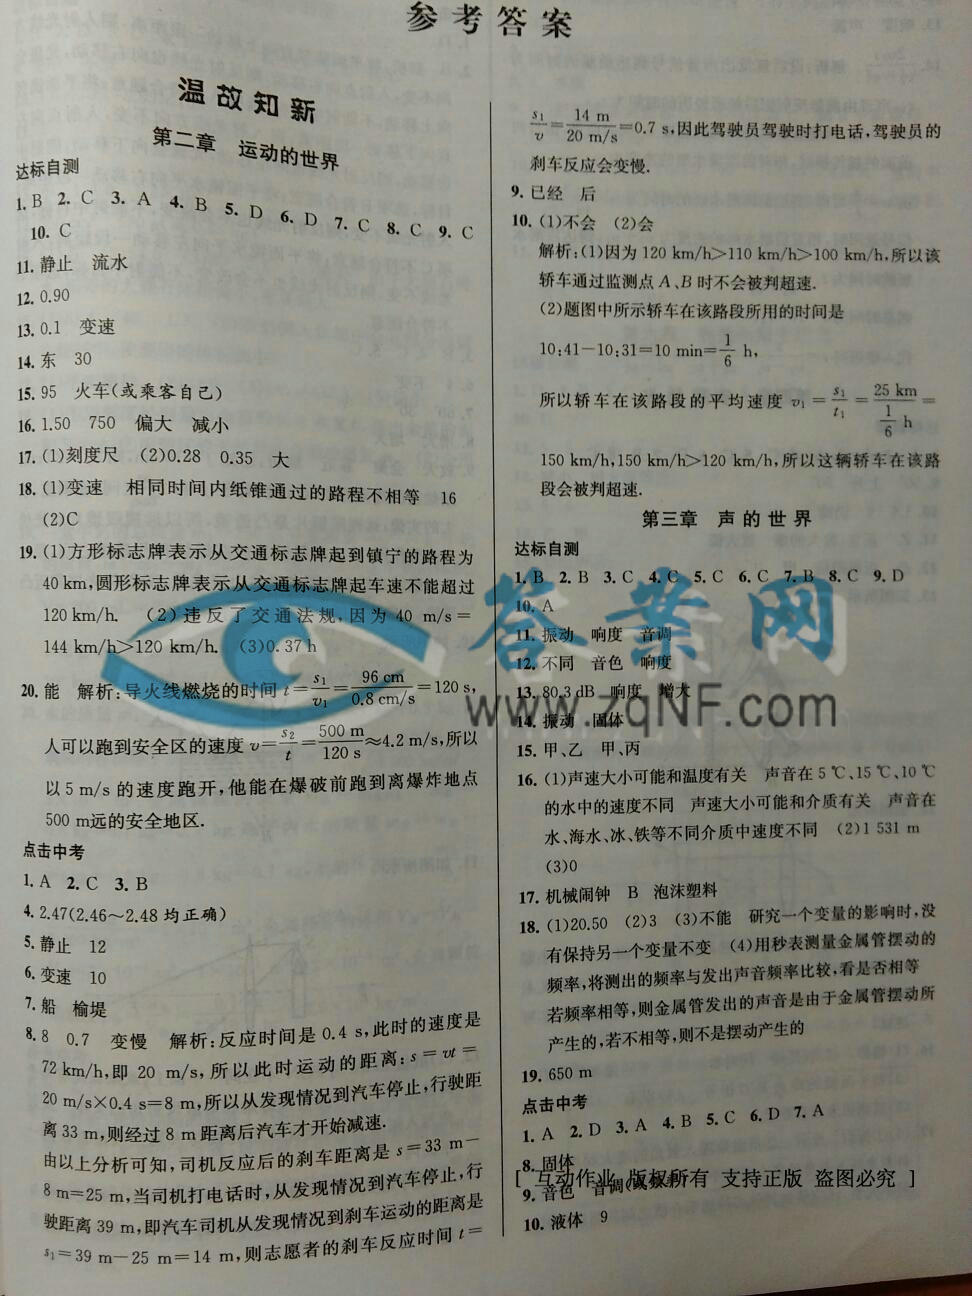 参考答案
温故知新
第二章 运动的世界
达标自测
1. B 2. C 3. A 4. B 5. D 6. D 7. C 8. C 9. C
10. C
11. 静止 流水
12. 0.90
13. 0.1 变速
14. 东 30
15. 95 火车(或乘客自己)
16. 1.50 750 偏大 减小
17. (1)刻度尺 (2)0.28 0.35 大
18. (1)变速 相同时间内纸锥通过的路程不相等 16
(2)C
19. (1)方形标志牌表示从交通标志牌起到镇宁的路程为
40 km,圆形标志牌表示从交通标志牌起车速不能超过
120 km/h. (2)违反了交通法规,因为 40 m/s=
144 km/h>120 km/h. (3)0.37 h
20. 能 解析:导火线燃烧的时间 t=s₁/v₁=96 cm/0.8 cm/s=120 s,
人可以跑到安全区的速度 v=s₂/t=500 m/120 s≈4.2 m/s,所以
以 5 m/s 的速度跑开,他能在爆破前跑到离爆炸地点
500 m远的安全地区.
点击中考
1. A 2. C 3. B
4. 2.47(2.46～2.48 均正确)
5. 静止 12
6. 变速 10
7. 船 榆堤
8. 8 0.7 变慢 解析:反应时间是 0.4 s,此时的速度是
72 km/h,即 20 m/s,所以此时运动的距离:s=vt=
20 m/s×0.4 s=8 m,所以从发现情况到汽车停止,行驶距
离 33 m,则经过 8 m 距离后汽车才开始减速.
由以上分析可知,司机反应后的刹车距离是 s=33 m-
8 m=25 m,当司机打电话时,从发现情况到汽车停止,行
驶距离 39 m,即汽车司机从发现情况到刹车运动的距离是
s₁=39 m-25 m=14 m,则志愿者的刹车反应时间 t=
s₁/v=14 m/20 m/s=0.7 s,因此驾驶员驾驶时打电话,驾驶员的
刹车反应会变慢.
9. 已经 后
10. (1)不会 (2)会
解析:(1)因为 120 km/h>110 km/h>100 km/h,所以该
轿车通过监测点 A、B 时不会被判超速.
(2)题图中所示轿车在该路段所用的时间是
10:41-10:31=10 min=1/6 h,
所以轿车在该路段的平均速度 v₁=s₁/t₁=25 km/(1/6 h)=
150 km/h,150 km/h>120 km/h,所以这辆轿车在该路
段会被判超速.
第三章 声的世界
达标自测
1. B 2. B 3. C 4. C 5. C 6. C 7. B 8. C 9. D
10. A
11. 振动 响度 音调
12. 不同 音色 响度
13. 80.3 dB 响度 增大
14. 振动 固体
15. 甲、乙 甲、丙
16. (1)声速大小可能和温度有关 声音在 5 ℃、15 ℃、10 ℃
的水中的速度不同 声速大小可能和介质有关 声音在
水、海水、冰、铁等不同介质中速度不同 (2)1 531 m
(3)0
17. 机械闹钟 B 泡沫塑料
18. (1)20.50 (2)3 (3)不能 研究一个变量的影响时,没
有保持另一个变量不变 (4)用秒表测量金属管摆动的
频率,将测出的频率与发出声音频率比较,看是否相等
若频率相等,则金属管发出的声音是由于金属管摆动所
产生的,若不相等,则不是摆动产生的
19. 650 m
点击中考
1. A 2. D 3. A 4. B 5. C 6. D 7. A
8. 固体
[ 互动作业 版权所有 支持正版 盗图必究 ]
9. 音色 音调
10. 液体 9
答案网
www.zqNF.com